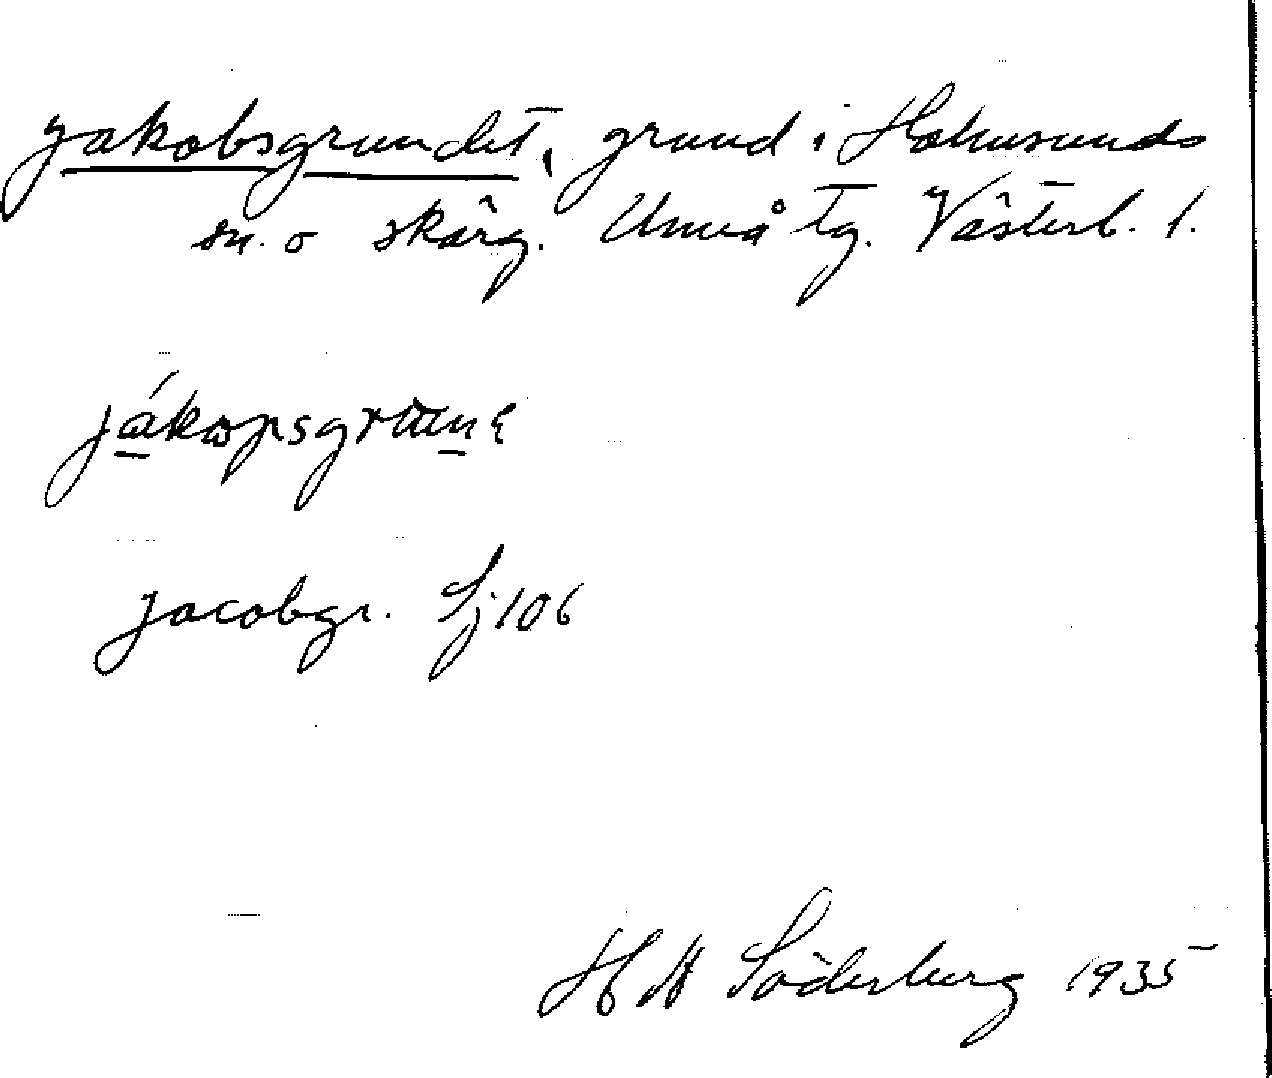 Jakobsgrundet, grund i Holmsunds
sn. o skärg. Umeå tg. Västerb. l.
jákopsgrunε
Jacobgr. Sj 106
H W Söderberg 1935